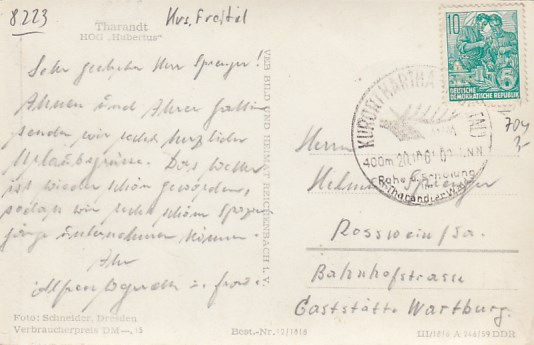 8223
Krs. Freital
Tharandt
HOG „Hubertus"
Sehr geehrter Herr Sprenger!
Ihnen und Ihrer Gattin
senden wir recht herzliche
Urlaubsgrüsse. Das Wetter
ist wieder schön geworden,
sodass wir recht schöne Spazier-
gänge unternehmen können.
Ihr
u. Frau.
Foto: Schneider, Dresden
Verbraucherpreis DM —,15
VEB BILD UND HEIMAT REICHENBACH I. V.
Best.-Nr. 12/1816
10
DEUTSCHE
DEMOKRATISCHE REPUBLIK
5
KURORT HARTHA
400m ü.NN
Ruhe u. Erholung
im
Tharandter Wald
704
Herrn
Helmut Sprenger
Rosswein/Sa.
Bahnhofstrasse
Gaststätte Wartburg.
III/18/6 A 246/59 DDR